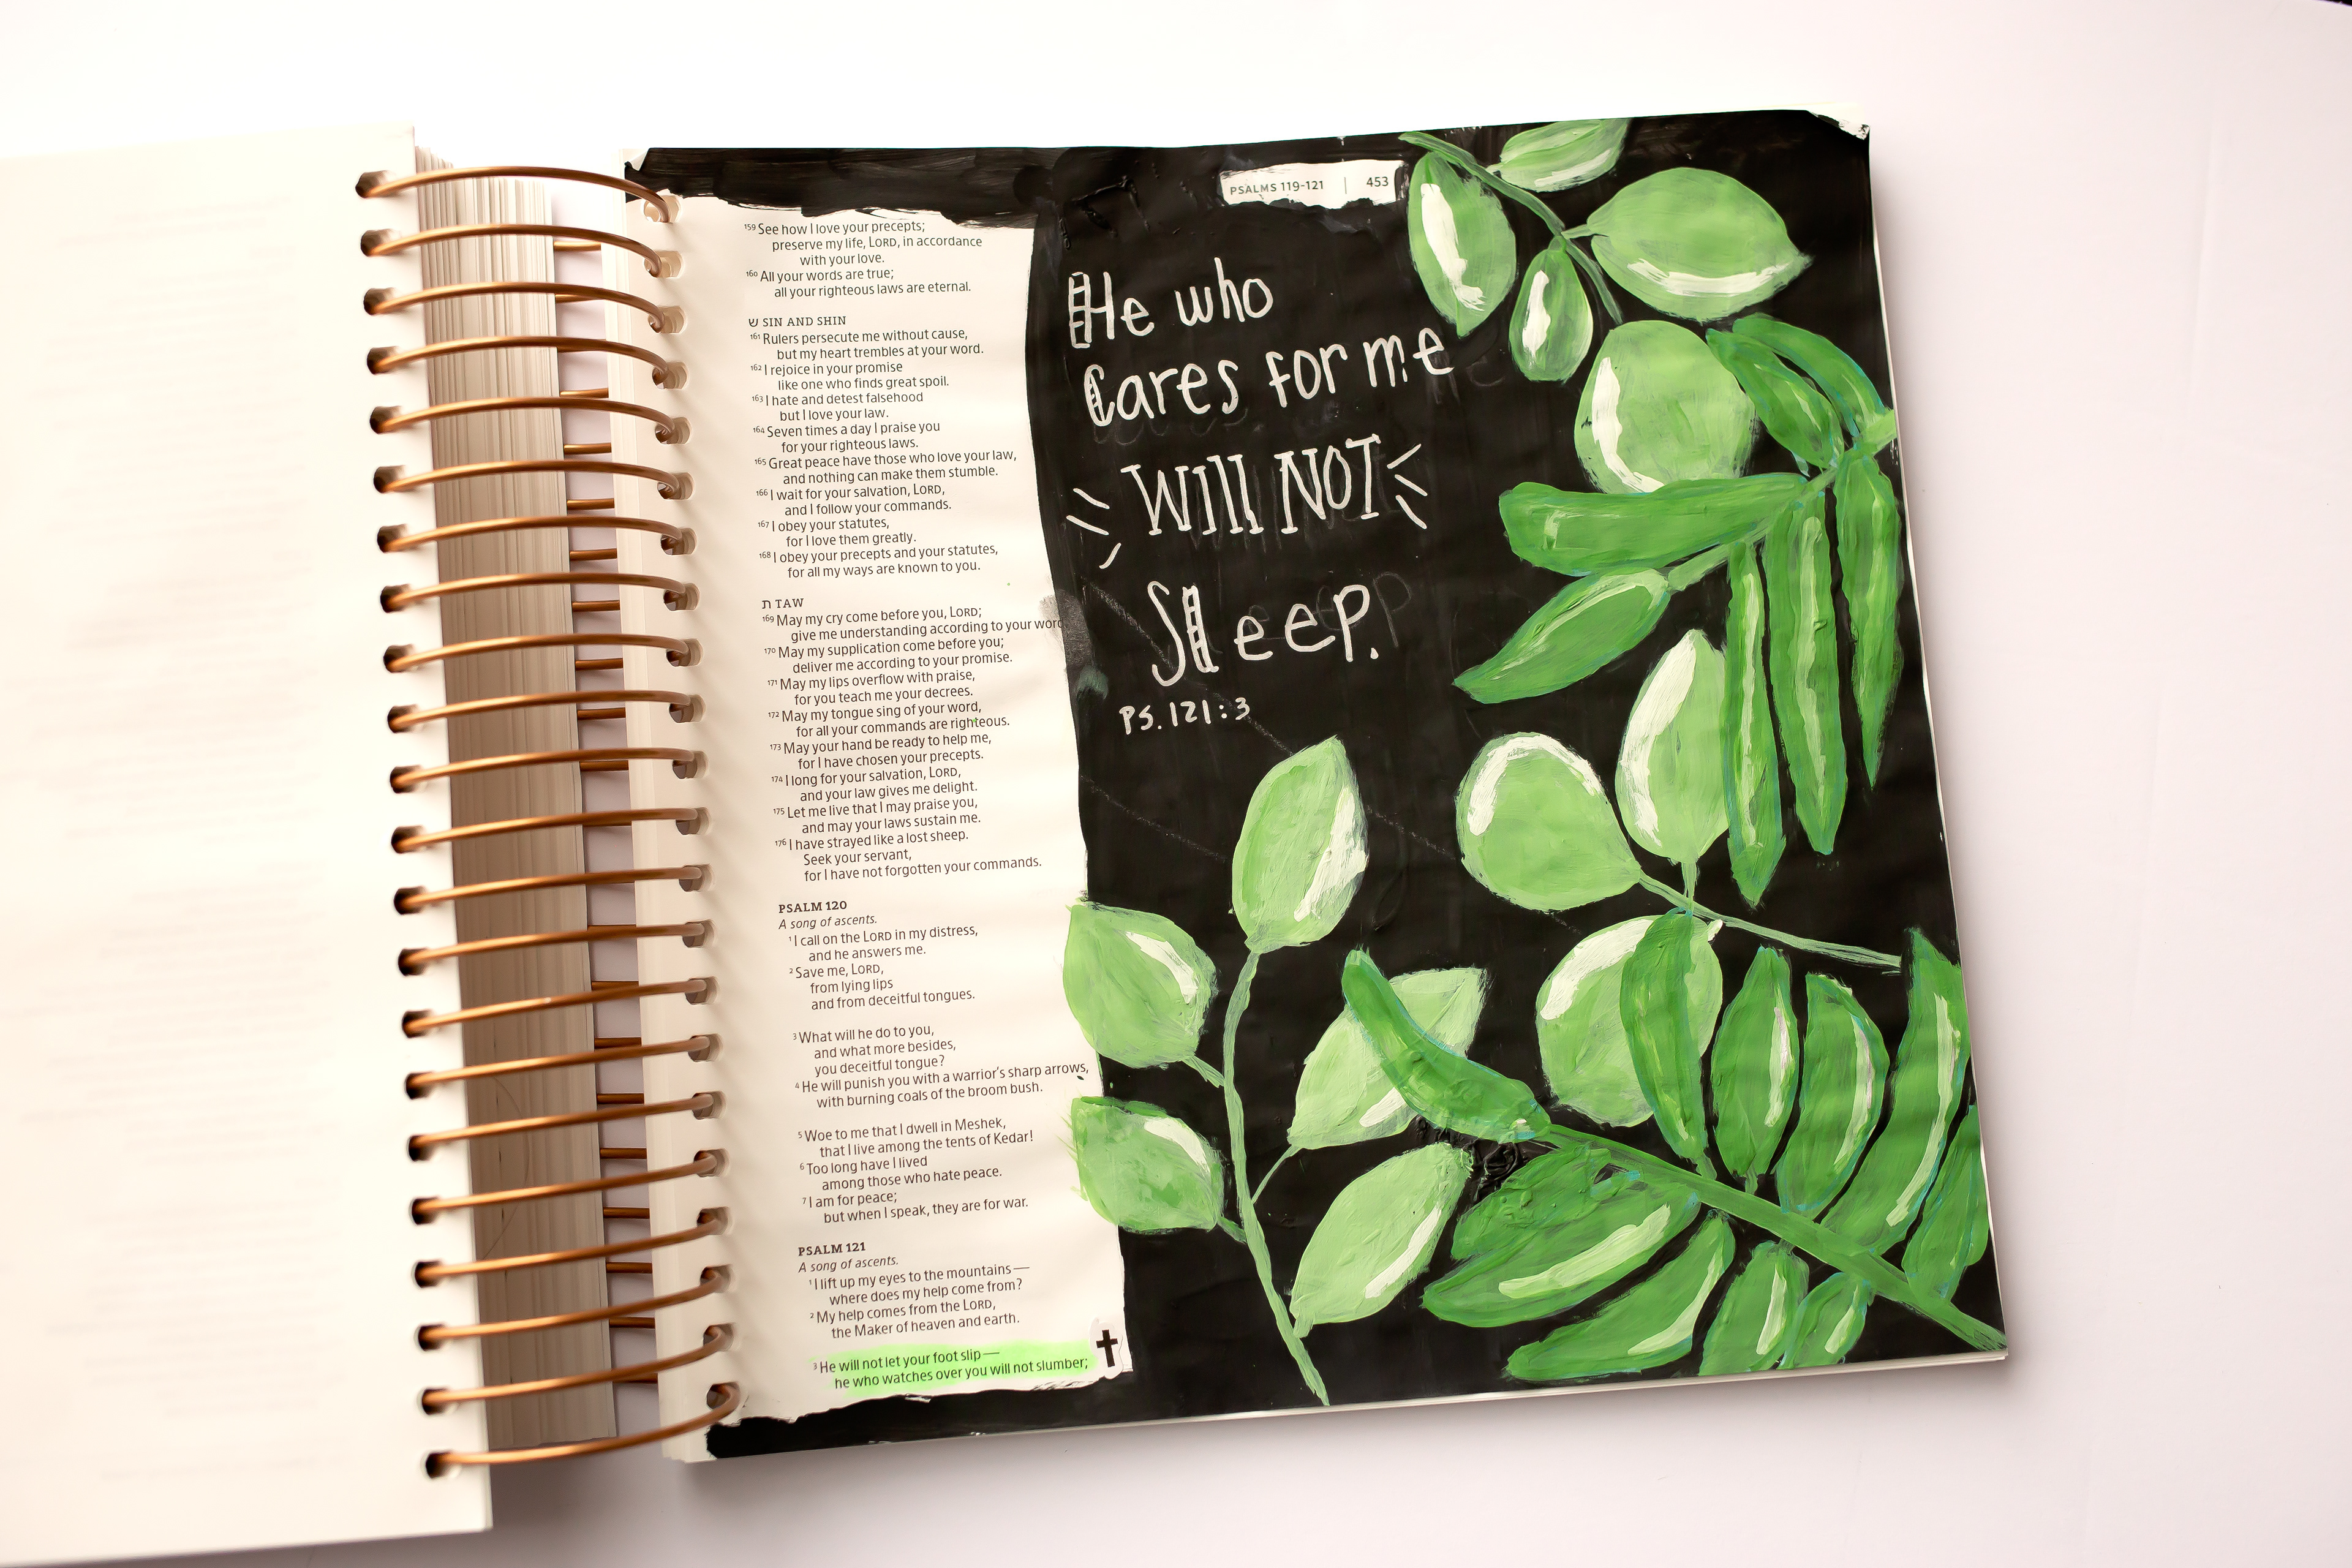 PSALMS 119-121 | 453
159 See how I love your precepts;
preserve my life, LORD, in accordance
with your love.
160 All your words are true;
all your righteous laws are eternal.
ש SIN AND SHIN
161 Rulers persecute me without cause,
but my heart trembles at your word.
162 I rejoice in your promise
like one who finds great spoil.
163 I hate and detest falsehood
but I love your law.
164 Seven times a day I praise you
for your righteous laws.
165 Great peace have those who love your law,
and nothing can make them stumble.
166 I wait for your salvation, LORD,
and I follow your commands.
167 I obey your statutes,
for I love them greatly.
168 I obey your precepts and your statutes,
for all my ways are known to you.
ת TAW
169 May my cry come before you, LORD;
give me understanding according to your word
170 May my supplication come before you;
deliver me according to your promise.
171 May my lips overflow with praise,
for you teach me your decrees.
172 May my tongue sing of your word,
for all your commands are righteous.
173 May your hand be ready to help me,
for I have chosen your precepts.
174 I long for your salvation, LORD,
and your law gives me delight.
175 Let me live that I may praise you,
and may your laws sustain me.
176 I have strayed like a lost sheep.
Seek your servant,
for I have not forgotten your commands.
PSALM 120
A song of ascents.
1 I call on the LORD in my distress,
and he answers me.
2 Save me, LORD,
from lying lips
and from deceitful tongues.
3 What will he do to you,
and what more besides,
you deceitful tongue?
4 He will punish you with a warrior's sharp arrows,
with burning coals of the broom bush.
5 Woe to me that I dwell in Meshek,
that I live among the tents of Kedar!
6 Too long have I lived
among those who hate peace.
7 I am for peace;
but when I speak, they are for war.
PSALM 121
A song of ascents.
1 I lift up my eyes to the mountains—
where does my help come from?
2 My help comes from the LORD,
the Maker of heaven and earth.
3 He will not let your foot slip—
he who watches over you will not slumber;
He who
Cares for me
WIll NOT
Sleep.
PS. 121:3